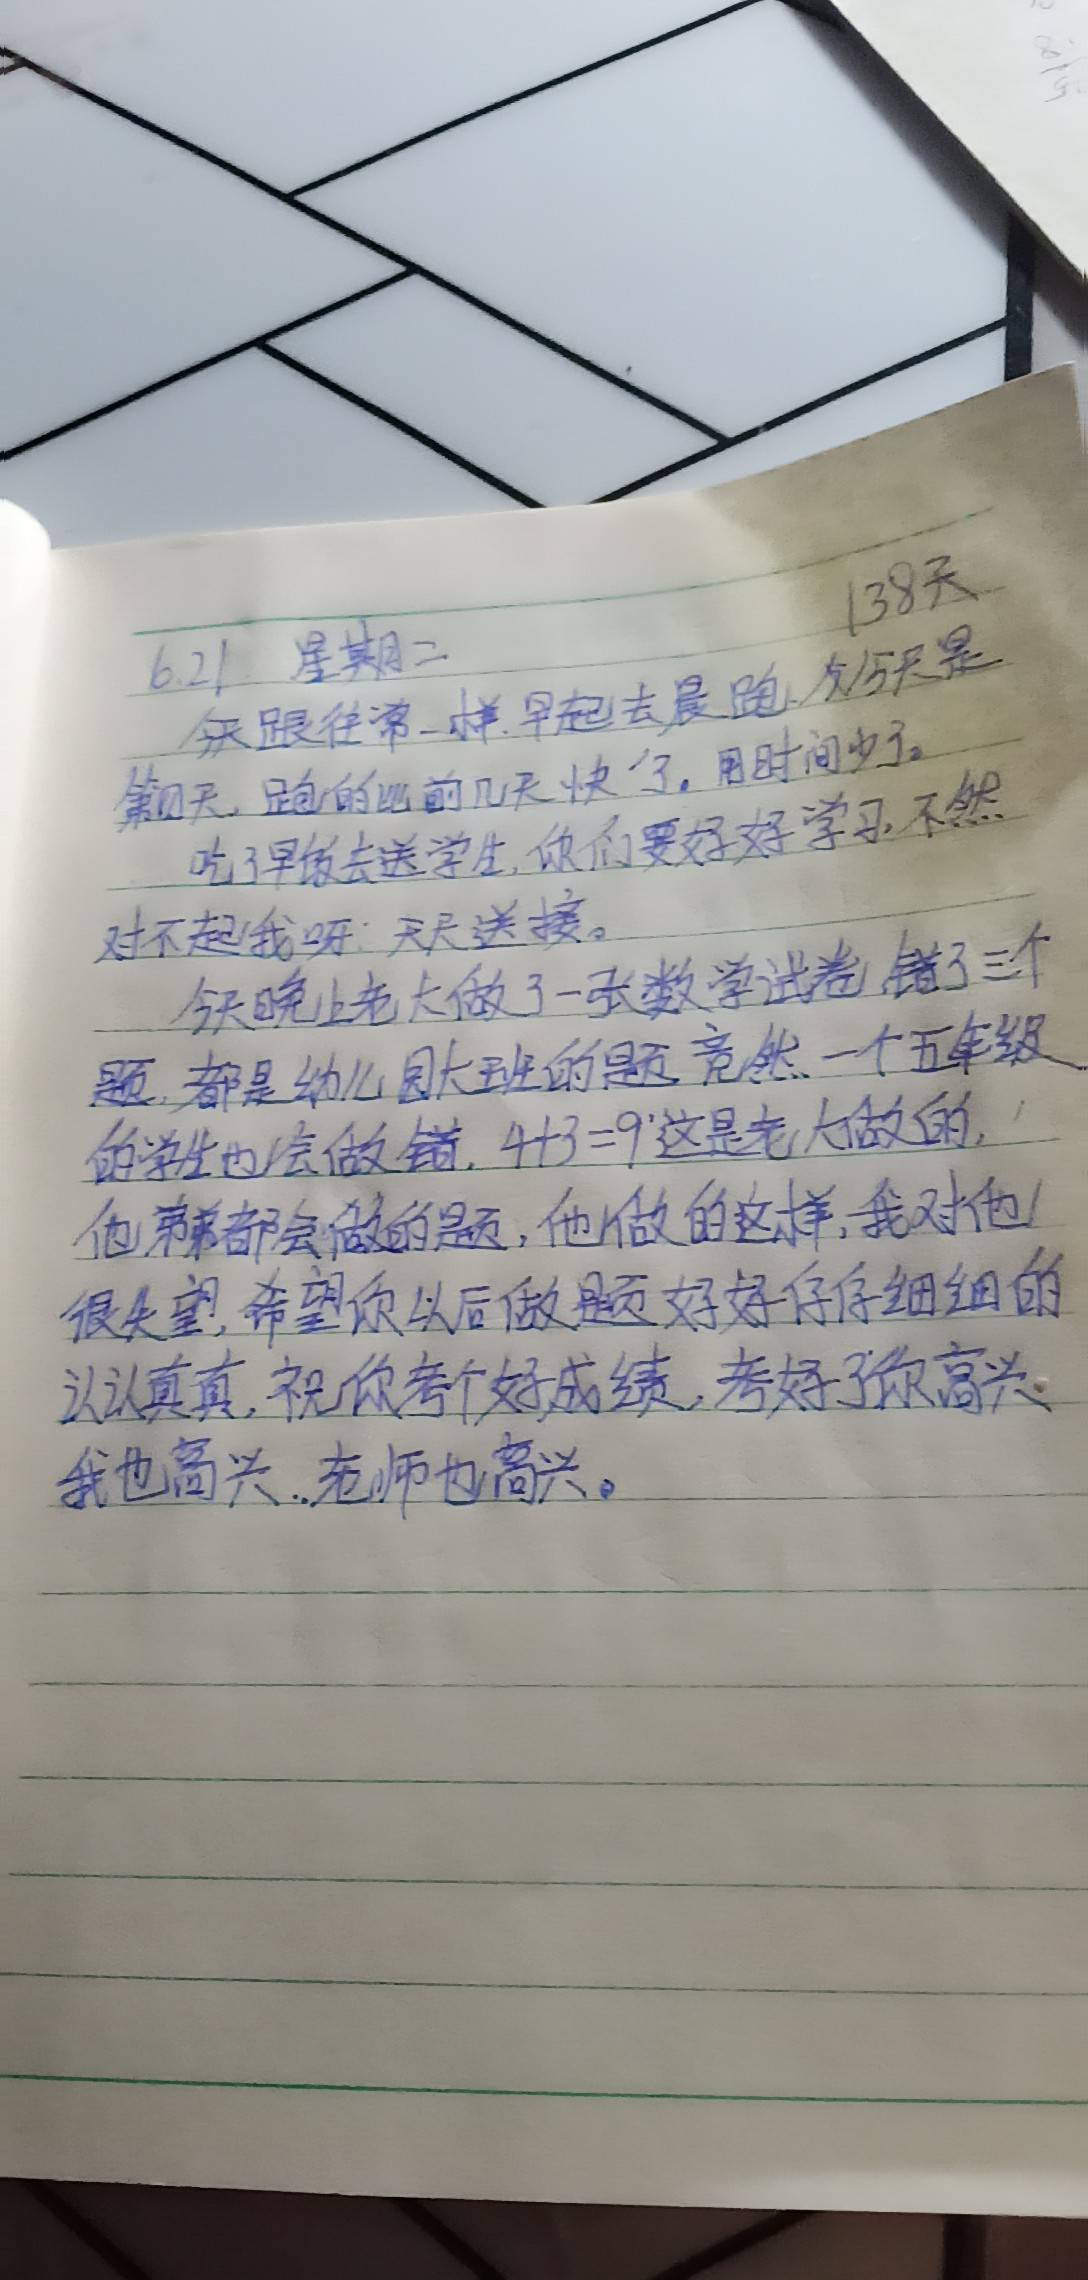 138天
6.21 星期二
今天跟往常一样.早起去晨跑.今天是
第四天,跑的比前几天快了。用时间少了。
吃了早饭去送学生,你们要好好学习,不然
对不起我呀:天天送接。
今天晚上老大做了一张数学试卷,错了三个
题,都是幼儿园大班的题,竟然一个五年级
的学生也会做错,4+3=9这是老大做的,
他弟弟都会做的题,他做的这样,我对他
很失望,希望你以后做题好好仔仔细细的
认认真真,祝你考个好成绩,考好了你高兴.
我也高兴..老师也高兴。